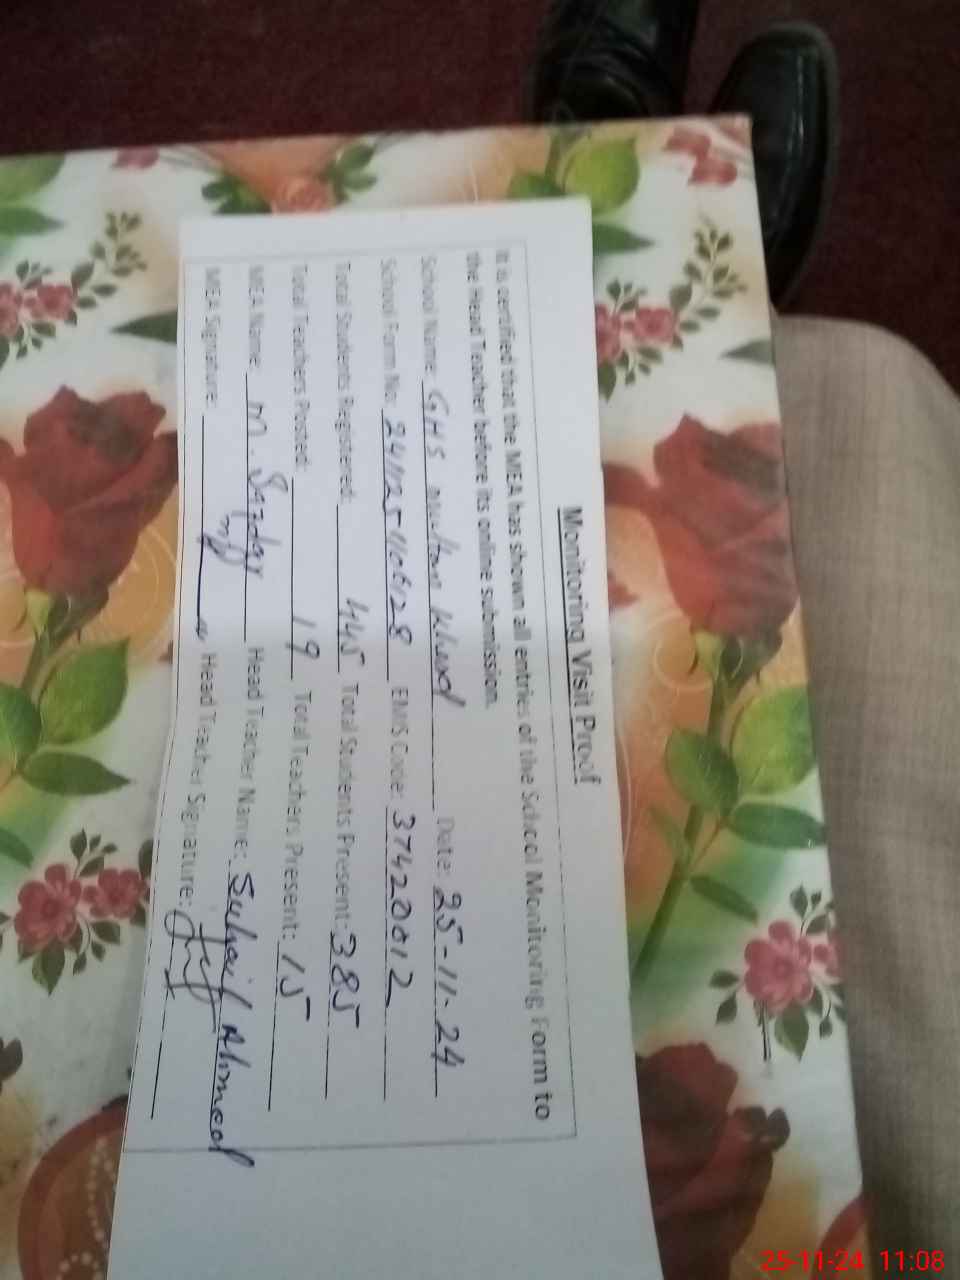 Monitoring Visit Proof
It is certified that the MEA has shown all entries of the School Monitoring Form to
the Head Teacher before its online submission.
School Name: GHS Multan Khurd Date: 25-11-24
School Form No: EMIS Code: 37420012
Total Students Registered: 445 Total Students Present: 385
Total Teachers Posted: 19 Total Teachers Present: 15
MEA Name: M. Head Teacher Name: Suhail Ahmed
MEA Signature: Head Teacher Signature:
25-11-24 11:08